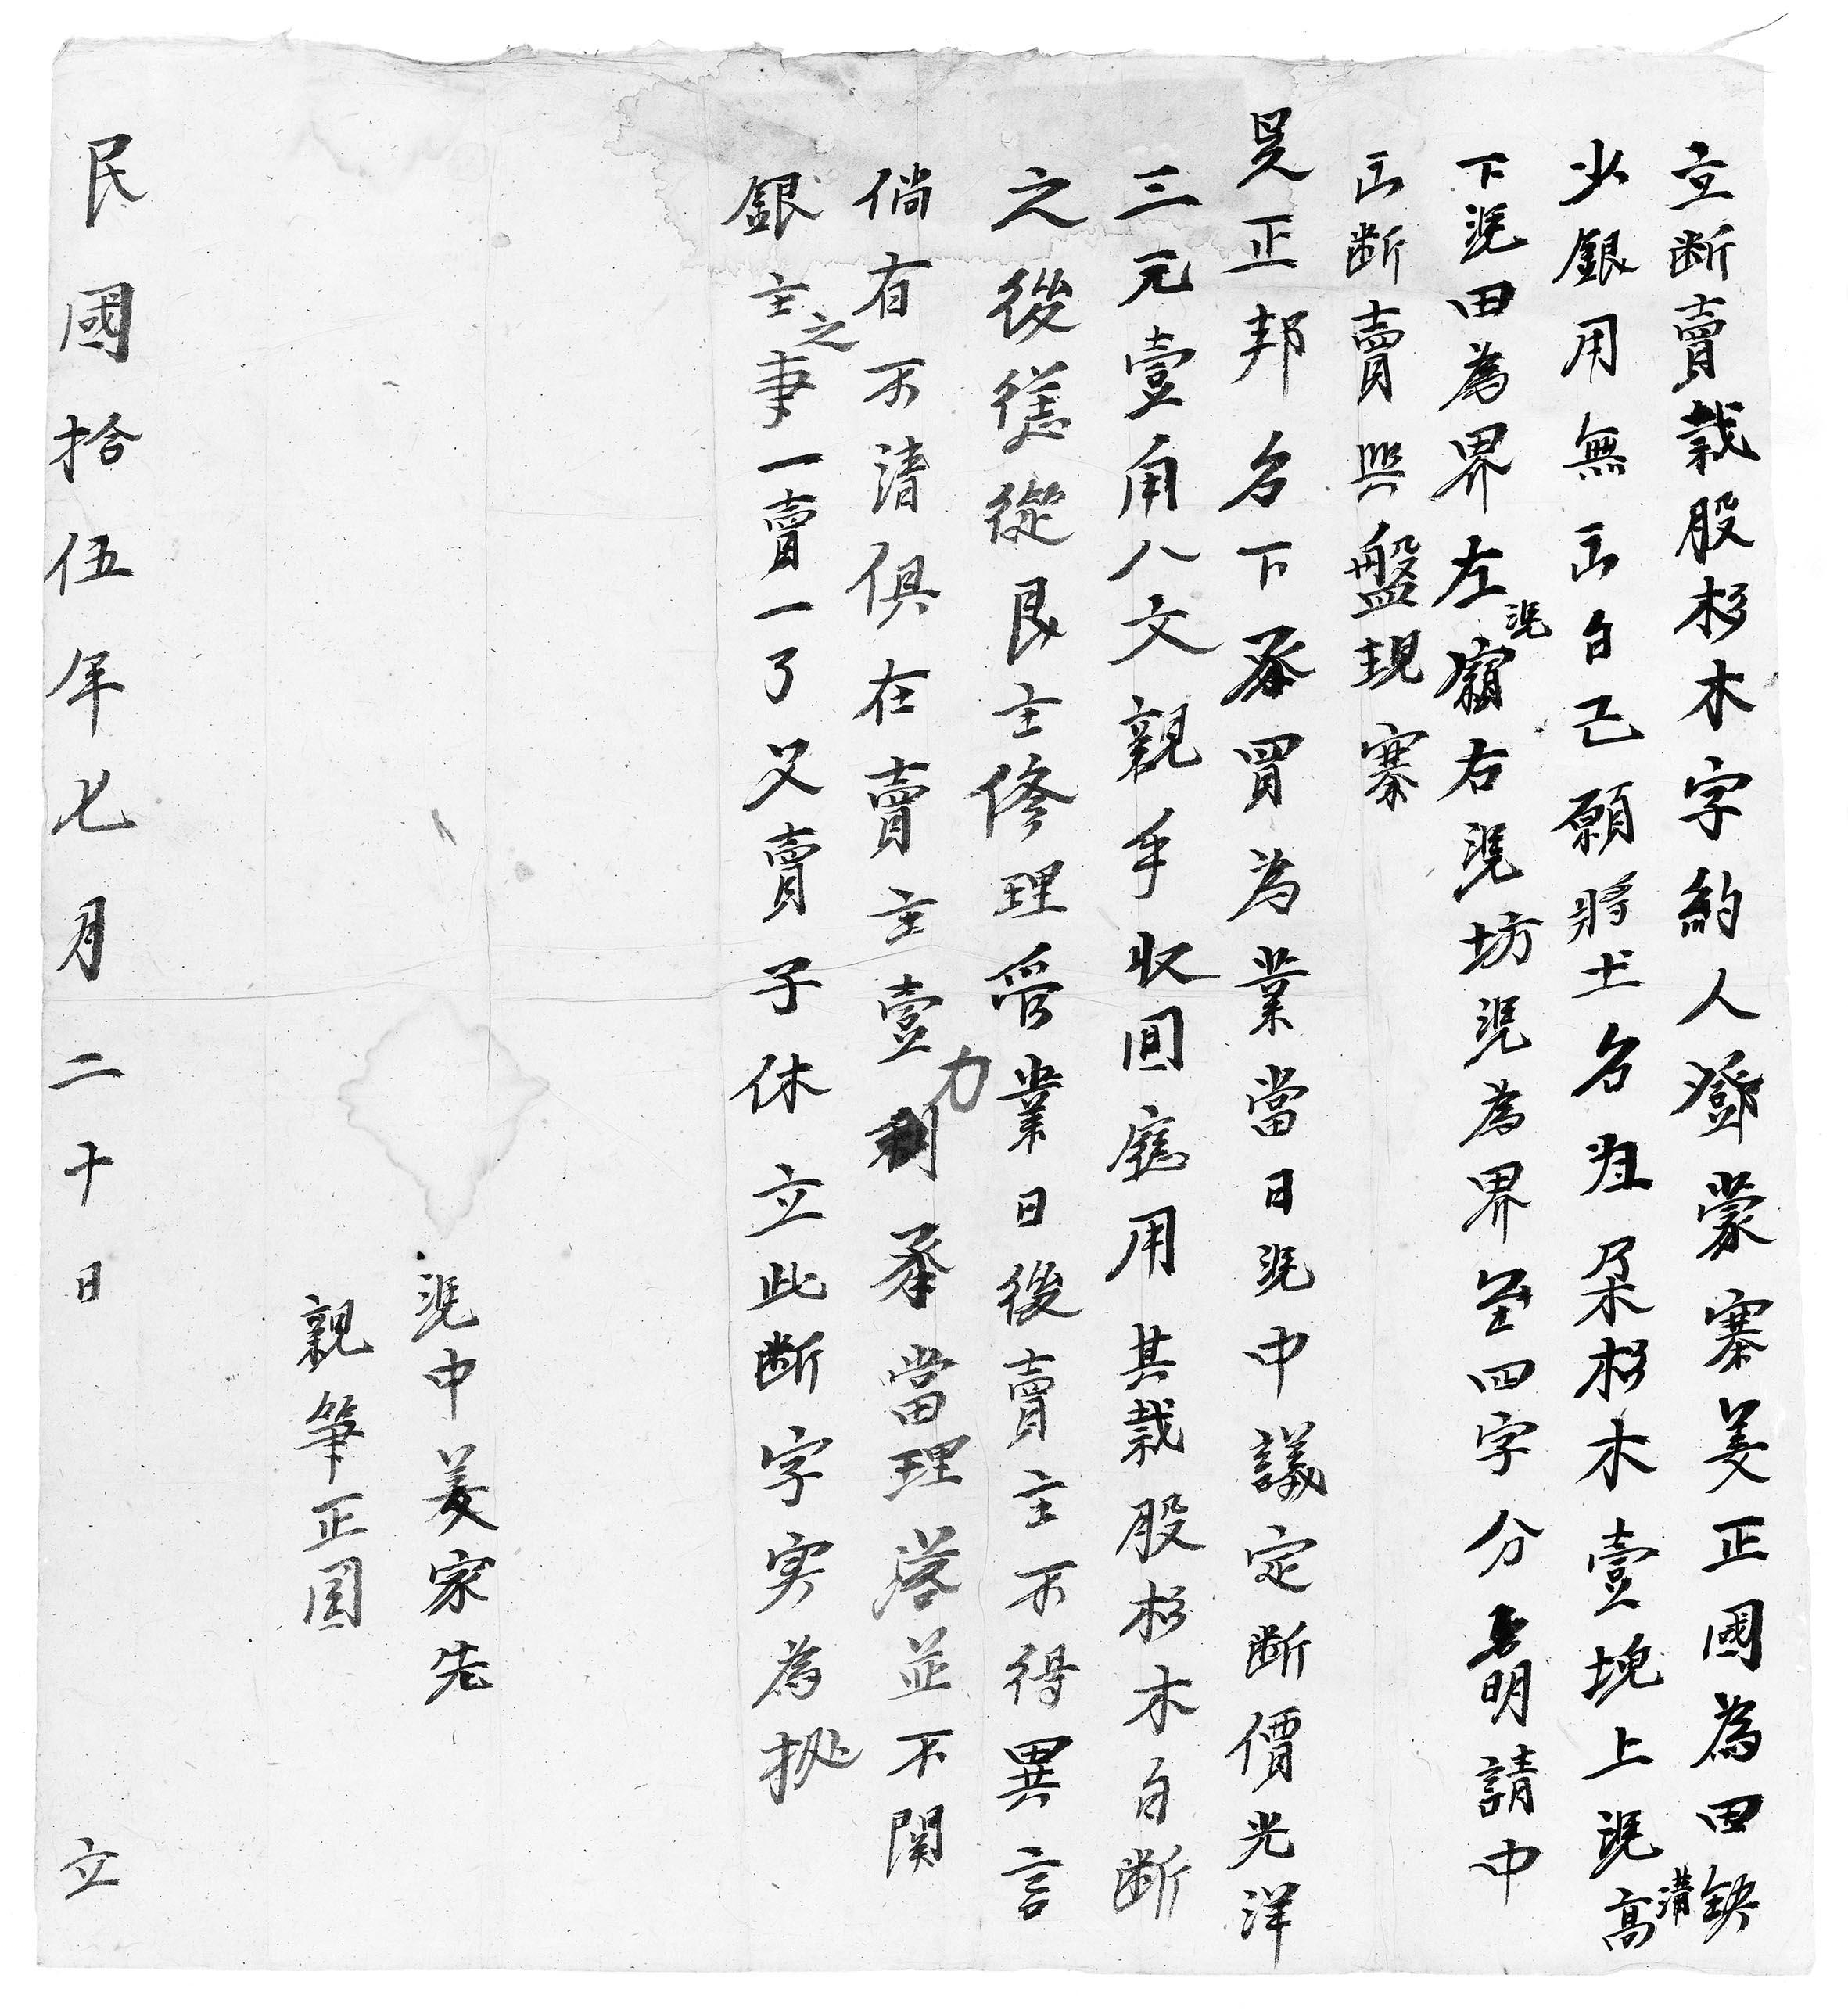 立断賣栽股杉木字約人鄧蒙寨姜正國為因缺
少銀用無出自己願將土名丑朶杉木壹塊上凴高溝
下凴田為界左凴嶺右凴坊凴為界至四字分明請中
出断賣與盤現寨
吴正邦名下承買為業當日凴中議定断價光洋
三元壹角八文親手收囬應用其栽股杉木自断
之後從銀主修理管業日後賣主不得異言
倘有不清俱在賣主壹力承當理落並不関
銀主之事一賣一了父賣子休立此断字实為㧣
凴中姜家先
親筆正国
民國拾伍年七月二十日 立